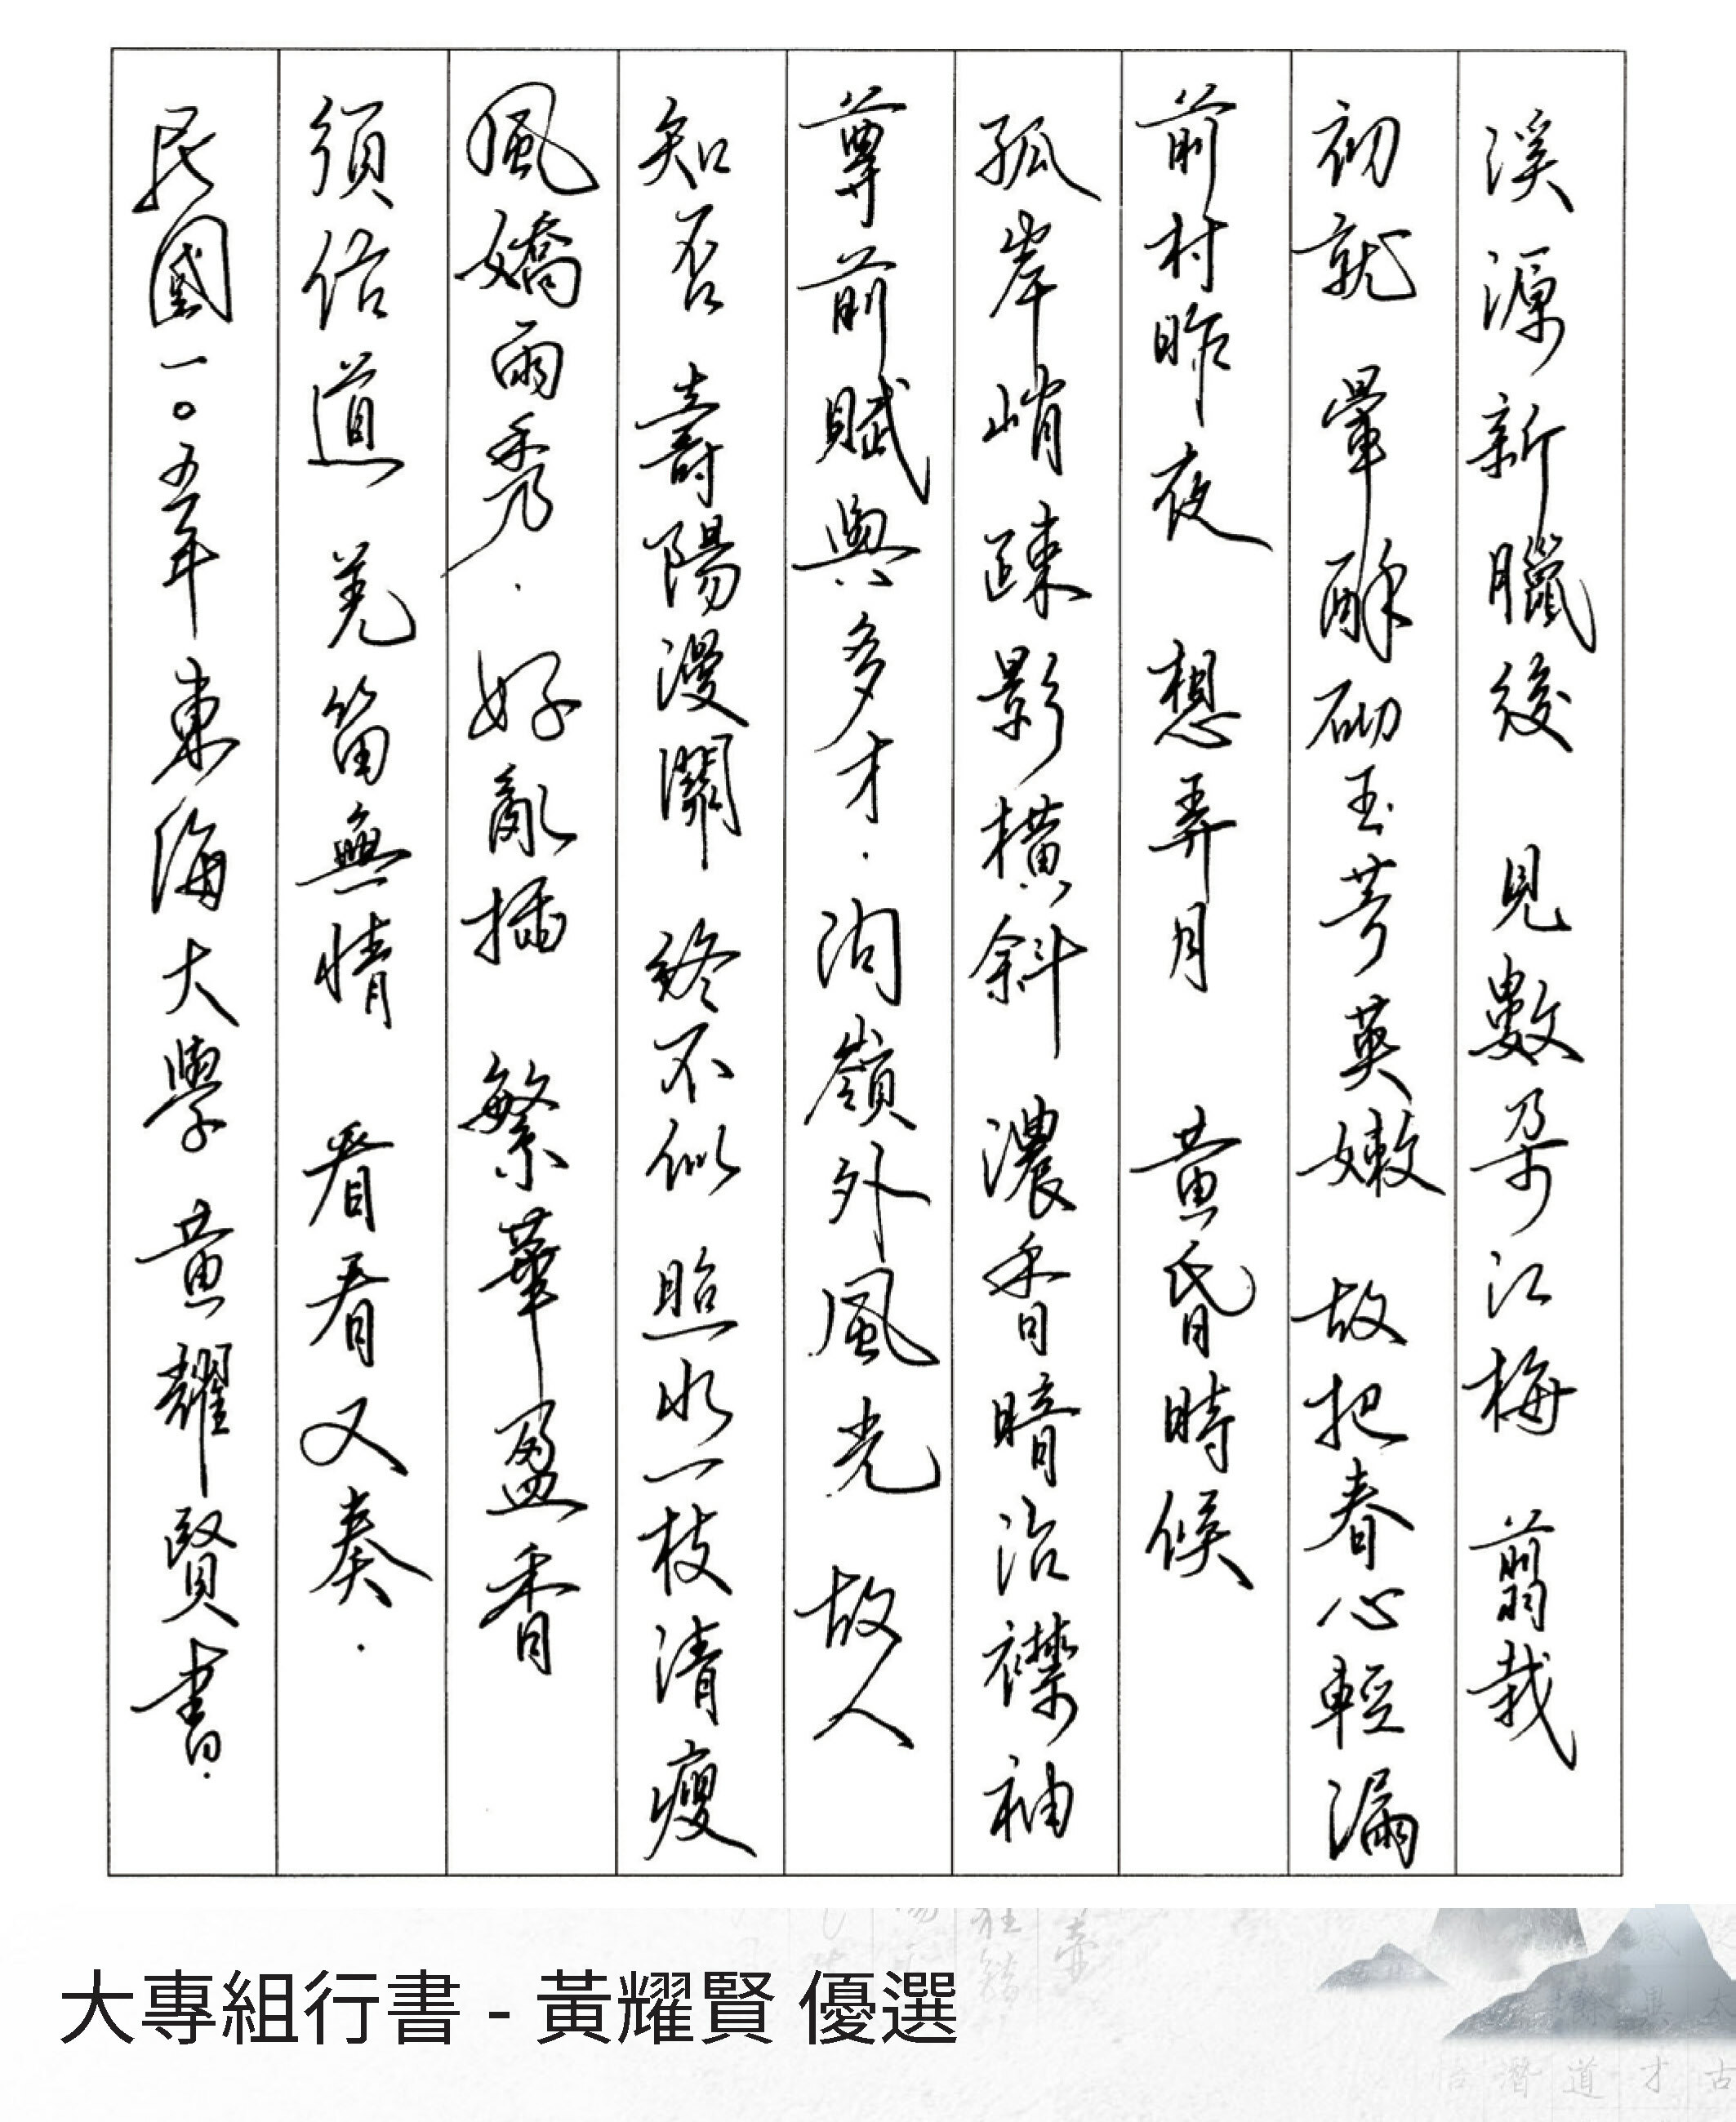 溪源新臘後　見數朵江梅　翦裁
初就　暈酥砌玉芳英嫩　故把春心輕漏
前村昨夜　想弄月　黃昏時候
孤岸峭疎影橫斜　濃香暗沾襟袖
尊前賦與多才．問嶺外風光　故人
知否　壽陽漫鬭　終不似　照水一枝清瘦
風嬌雨秀．好亂插　繁華盈香
須信道　羌笛無情　看看又奏．
民國一〇五年東海大學　黃耀賢書．
大專組行書 - 黃耀賢 優選